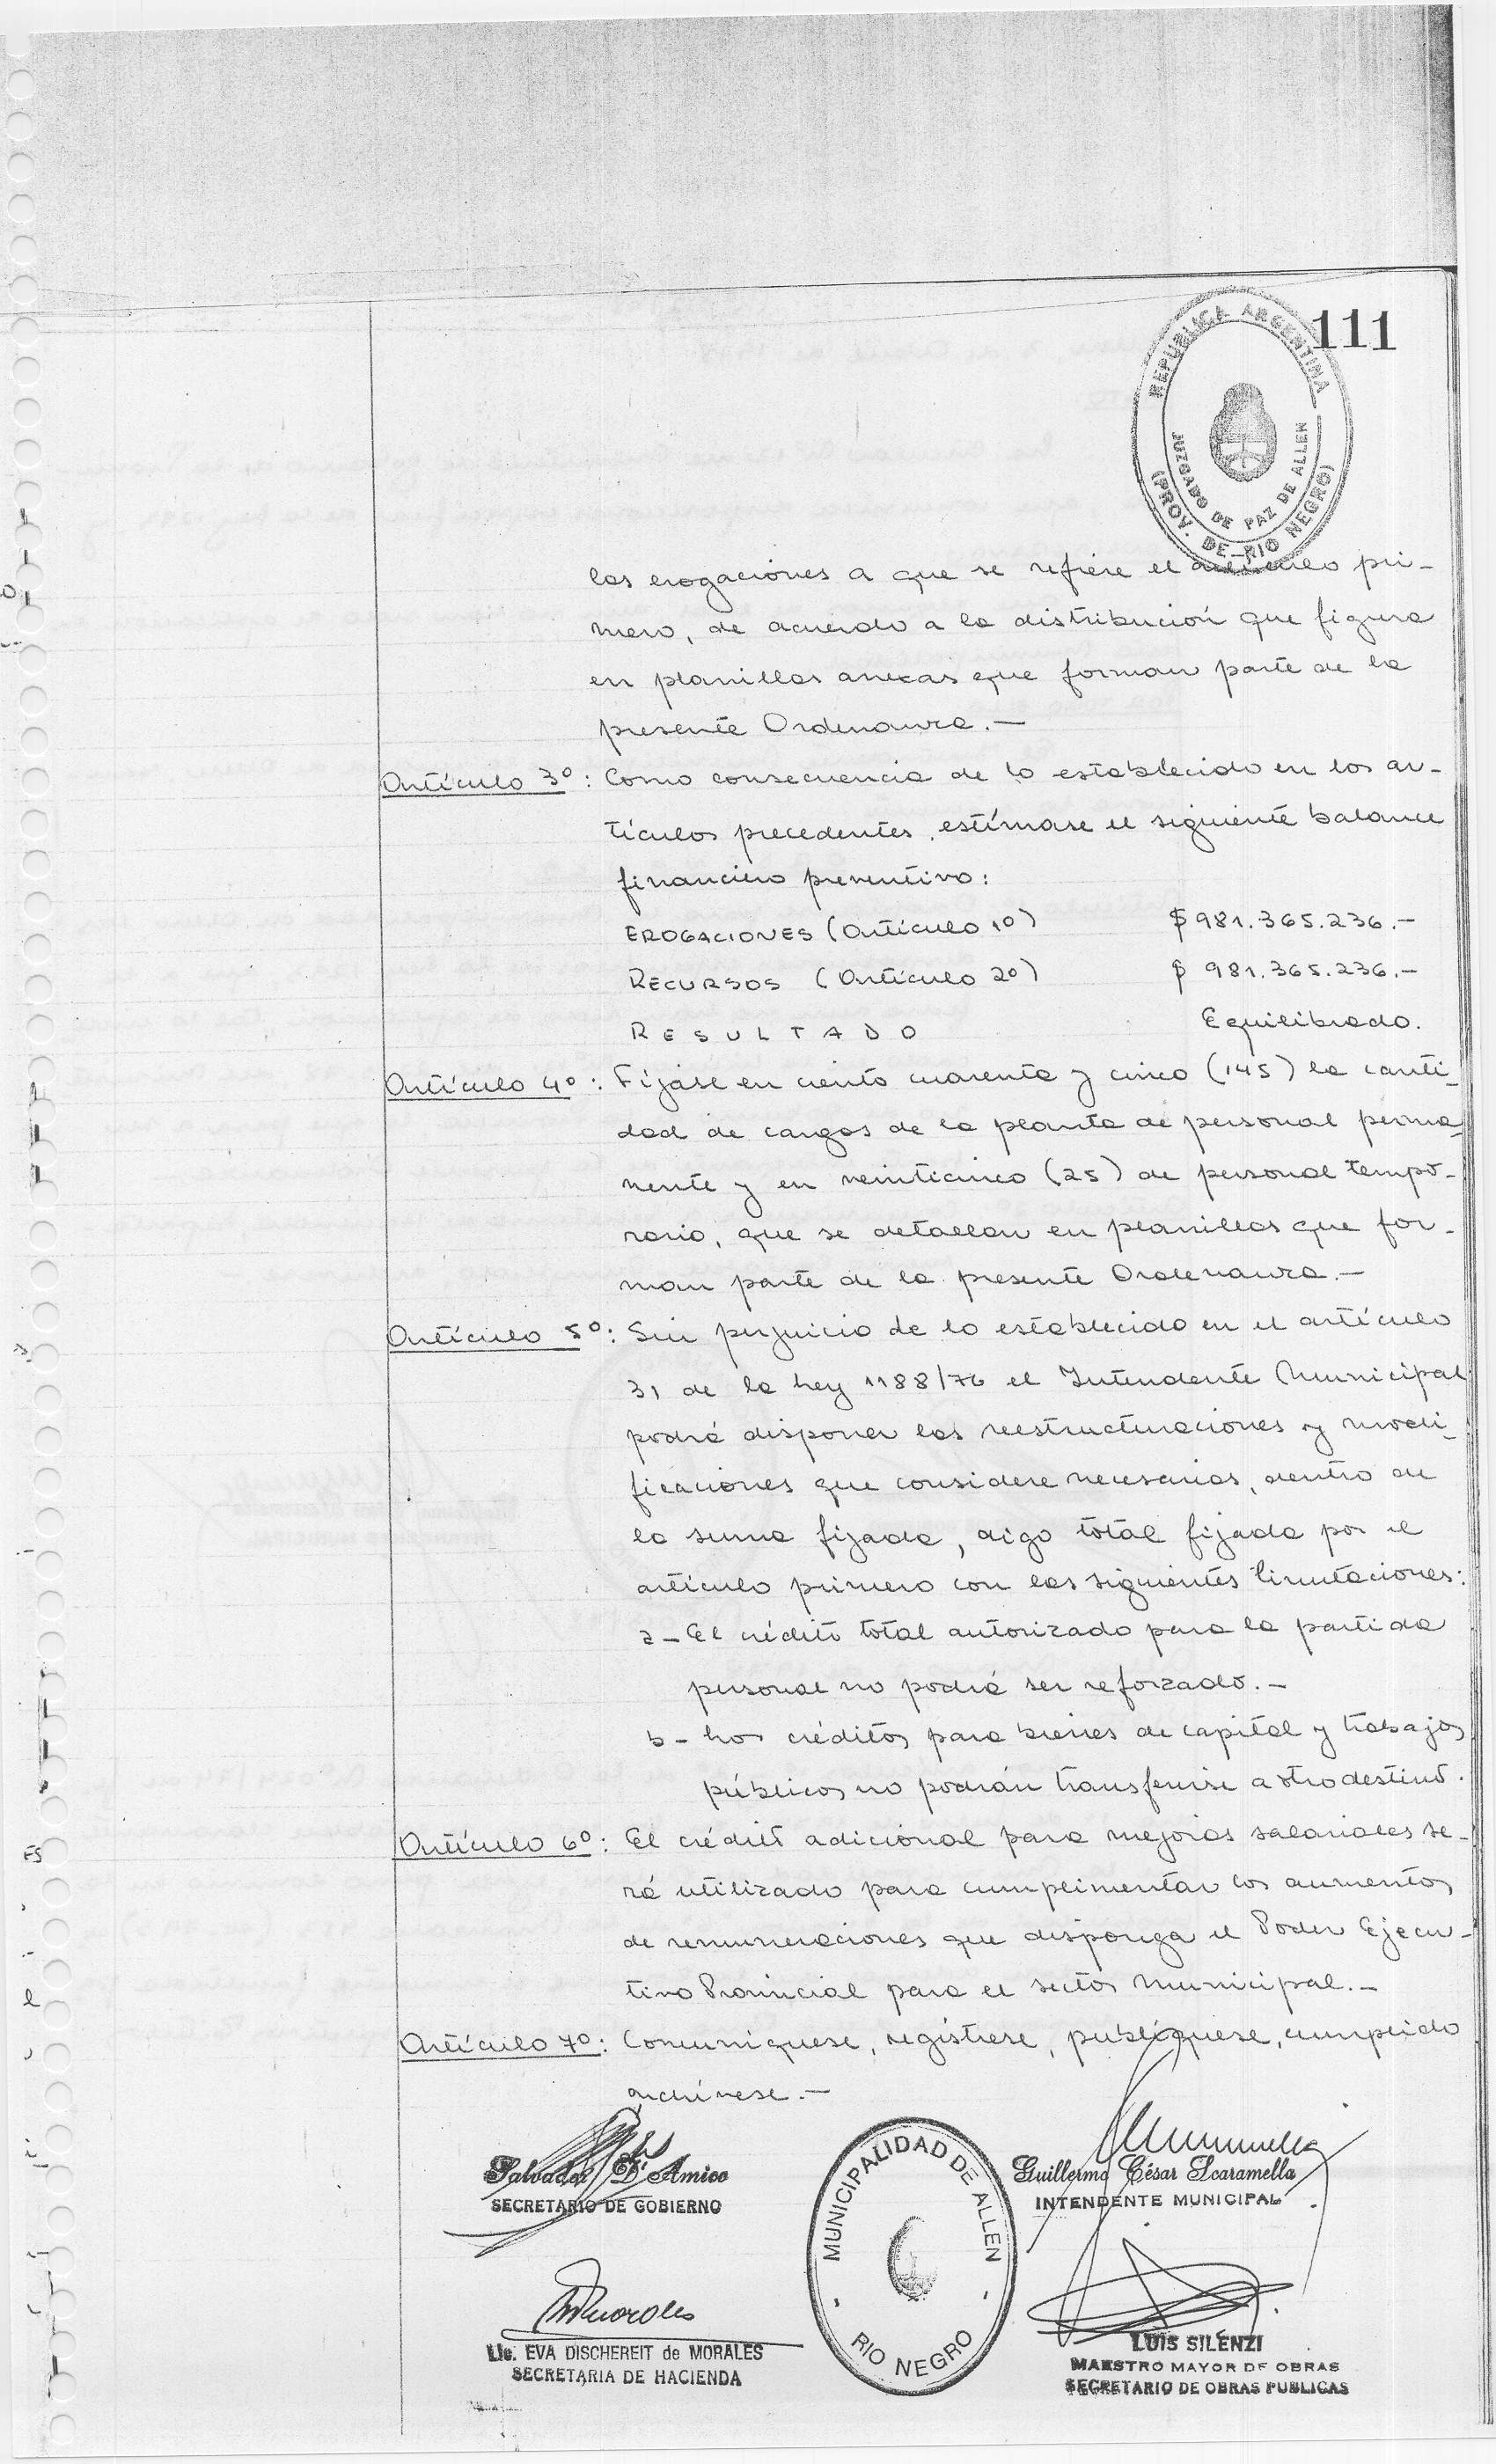 111
REPUBLICA ARGENTINA
JUZGADO DE PAZ DE ALLEN
(PROV. DE RIO NEGRO)
las erogaciones a que se refiere el artículo pri-
mero, de acuerdo a la distribución que figura
en planillas anexas que forman parte de la
presente Ordenanza.-
Artículo 3º: Como consecuencia de lo establecido en los ar-
tículos precedentes, estímase el siguiente balance
financiero preventivo:
EROGACIONES (Artículo 1º) $ 981.365.236.-
RECURSOS (Artículo 2º) $ 981.365.236.-
RESULTADO Equilibrado.
Artículo 4º: Fíjase en ciento cuarenta y cinco (145) la canti-
dad de cargos de la planta de personal perma-
nente y en veinticinco (25) de personal tempo-
rario, que se detallan en planillas que for-
man parte de la presente Ordenanza.-
Artículo 5º: Sin perjuicio de lo establecido en el artículo
31 de la Ley 1188/76 el Intendente Municipal
podrá disponer las reestructuraciones y modi-
ficaciones que considere necesarias, dentro de
la suma fijada, digo total fijada por el
artículo primero con las siguientes limitaciones:
a- El crédito total autorizado para la partida
personal no podrá ser reforzado.-
b- Los créditos para bienes de capital y trabajos
públicos no podrán transferirse a otro destino.
Artículo 6º: El crédito adicional para mejoras salariales se-
rá utilizado para cumplimentar los aumentos
de remuneraciones que disponga el Poder Ejecu-
tivo Provincial para el sector Municipal.-
Artículo 7º: Comuníquese, regístrese, publíquese, cumplido
archívese.-
Salvador D'Amico
SECRETARIO DE GOBIERNO
MUNICIPALIDAD DE ALLEN
- RIO NEGRO -
Guillermo César Scaramella
INTENDENTE MUNICIPAL
Lic. EVA DISCHEREIT de MORALES
SECRETARIA DE HACIENDA
LUIS SILENZI
MAESTRO MAYOR DE OBRAS
SECRETARIO DE OBRAS PUBLICAS